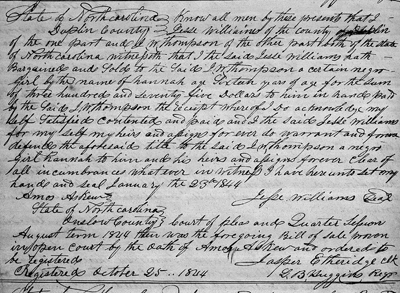 State of North Carolina } Know all men by these presents that I
Duplin County } Jesse Williams of the county of Duplin
of the one part and L W Thompson of the other part both of the State
of North Carolina witnesseth that I the said Jesse Williams hath
Bargained and Sold to the said L W Thompson a certain negro
Girl by the name of hannah a Forteen years of age for the sum
of three hundred and seventy five Dollars to him in hands paid
by the said L W Thompson the Receipt whereof I do acknowledge my
Self Satisfied contented and paid and I the said Jesse Williams
for my self my heirs and assigns for ever do warrant and forever
defend the aforesaid title to the said L W Thompson a negro
Girl hannah to him and his heirs and assigns forever Clear of
all incumbrances whatever in Witness I have hereunto set my
hand and seal January the 23rd 1844
Amos Askew Jesse Williams Seal
State of North Carolina
Onslow County } Court of pleas and Quarter Session
August term 1844 then was the foregoing Bill of Sale proven
in open Court by the Oath of Amos Askew and ordered to
be registered Jasper Etheridge Clk
Registered October 25 .. 1844 Huggins Regr